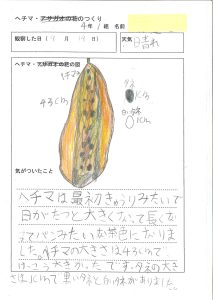 ヘチマ・アサガオの花のつくり
4年 組 名前
観察した日 月 日 天気 晴れ
ヘチマ・アサガオの花の図
ヘチマ
43cm
たね
1cm
1cm
気がついたこと
ヘチマは最初きゅうりみたいで
日がたつと大きくなって長くな
ってパンみたいな茶色になりま
した。ヘチマの大きさは43cmで
けっこう大きかったです。たねの大き
さは1cmで黒いたねと白い物がありました。